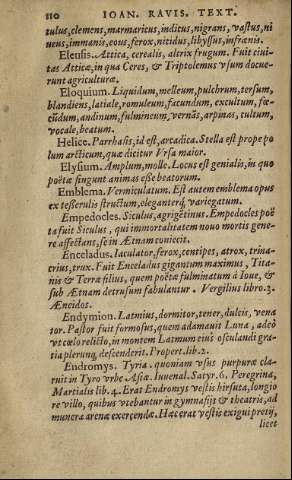 110 IOAN. RAVIS. TEXT.
tulus, clemens, marmaricus, inditus, nigrans, vastus, ni
ueus, immanis, eous, ferox, nitidus, libyssus, infrænis.
Eleusis. Attica, cerealis, altrix frugum. Fuit ciui-
tas Atticæ, in qua Ceres, & Triptolemus vsum docue-
runt agriculturæ.
Eloquium. Liquidum, melleum, pulchrum, tersum,
blandiens, latiale, romuleum, facundum, excultum, fœ-
cũdum, audinum, fulmineum, vernãs, arpinas, cultum,
vocale, beatum.
Helice. Parrhasis, id est, arcadica. Stella est prope po
lum arcticum, quæ dicitur Vrsa maior.
Elysium. Amplum, molle. Locus est genialis, in quo
poëtæ fingunt animas esse beatorum.
Emblema. Vermiculatum. Est autem emblema opus
ex tesserulis structum, eleganterq; variegatum.
Empedocles. Siculus, agrigẽtinus. Empedocles poë
ta fuit Siculus, qui immortalitatem nouo mortis gene-
re affectans, se in Ætnam coniecit.
Enceladus. Iaculator, ferox, centipes, atrox, trina-
crius, trux. Fuit Enceladus gigantum maximus, Tita-
nis & Terræ filius, quem poëtæ fulminatum à Ioue, &
sub Ætnam detrusum fabulantur. Vergilius libro. 3.
Æneidos.
Endymion. Latmius, dormitor, tener, dulcis, vena
tor. Pastor fuit formosus, quem adamauit Luna, adeò
vt cœlo relicto, in montem Latmum eius osculandi gra-
tia plerunq; descenderit. Propert. lib. 2.
Endromys. Tyria. quoniam vsus purpuræ cla-
ruit in Tyro vrbe Asiæ. Iuuenal. Satyr. 6. Peregrina,
Martialis lib. 4. Erat Endromys vestis hirsuta, longio
re villo, quibus vtebantur in gymnasijs & theatris, ad
munera arenæ exercendæ. Hæc erat vestis exigui pretij,
licet